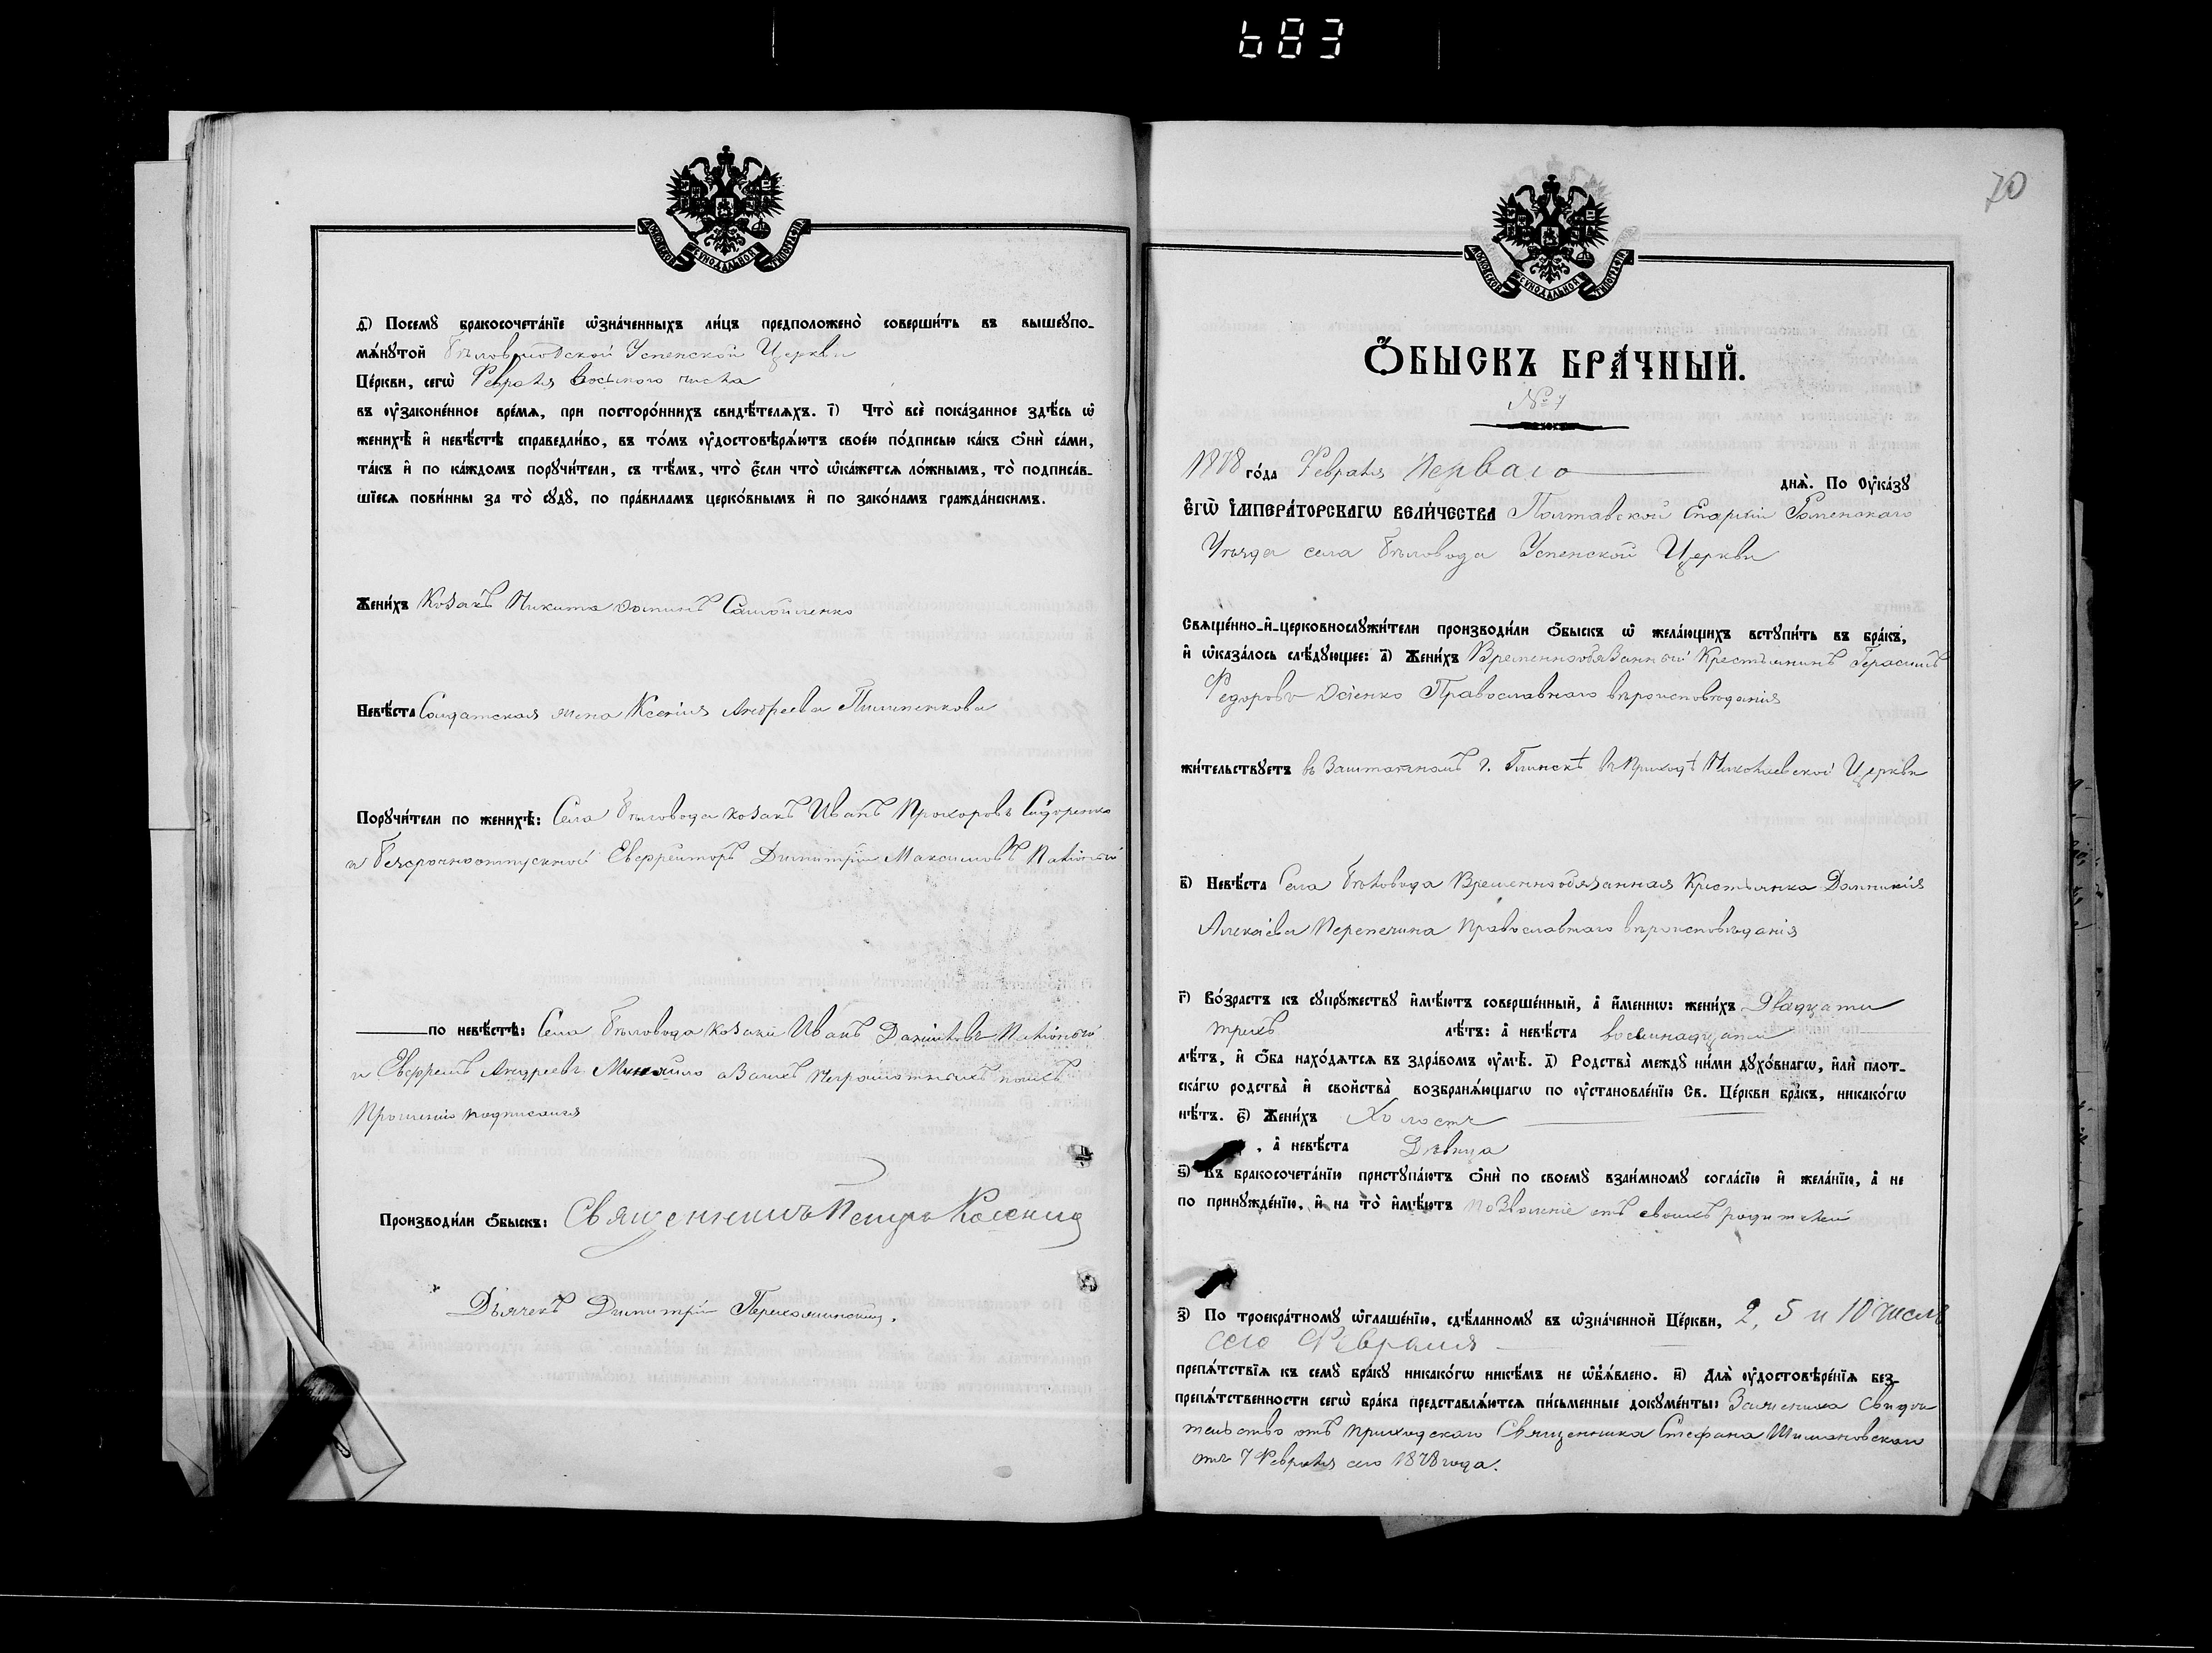 683
МОСКОВСКОЙ СѴНОДАЛЬНОЙ ТИПОГРАФІИ
д҃) Посемꙋ̀ бракосочета́нїе ѡ҆зна́ченныхъ ли́цъ предположено̀ соверши́ть въ вышеꙋпо-
мѧ́нꙋтой Бѣловодской Успенской Церкви
Це́ркви, сегѡ̀ Февраля восьмого числа
въ ᲂу҆зако́ненное вре́мѧ, при посторо́ннихъ свидѣ́телѧхъ. ї҃) Что̀ всѐ пока́занное здѣ́сь ѡ҆
женихѣ̀ и҆ невѣ́стѣ справедли́во, въ то́мъ ᲂу҆достовѣрѧ́ютъ свое́ю по́дписью ка́къ ѻ҆нѝ са́ми,
та́къ и҆ по ка́ждомъ порꙋчи́тели, съ тѣ́мъ, что̀ є҆́сли что̀ ѡ҆ка́жетсѧ ло́жнымъ, то̀ подписа́в-
шїесѧ пови́нны за то̀ сꙋдꙋ̀, по пра́виламъ церко́внымъ и҆ по зако́намъ гражда́нскимъ.
Жени́хъ Козакъ Никита Самойленко
Невѣ́ста Солдатская жена Ксенія Андреева Пилипенкова
Порꙋчи́тели по женихѣ̀: Села Бѣловода козакъ Иванъ Прохоровъ Сидоренко
и безсрочноотпускной Ефрейторъ Димитрій Максимовъ
по невѣ́стѣ: Села Бѣловода козаки Иванъ Даниловъ
и Ефремъ Андреевъ Миняйло а за нихъ неграмотныхъ по ихъ
прошенію подписался
Производи́ли ѻ҆́быскъ: Священникъ Петръ
Дьячекъ Димитрій
70
МОСКОВСКОЙ СѴНОДАЛЬНОЙ ТИПОГРАФІИ
Ѻ҆́БЫСКЪ БРА́ЧНЫЙ.
№ 7
1878 го́да Февраля Перваго днѧ̀. По Оу҆ка́зꙋ
Є҆ГѠ̀ И҆МПЕРА́ТОРСКАГѠ ВЕЛИ́ЧЕСТВА Полтавской Епархіи Роменскаго
Уѣзда села Бѣловода Успенской Церкви
Свѧще́нно-и҆-церковнослꙋжи́тели производи́ли ѻ҆́быскъ ѡ҆ жела́ющихъ встꙋпи́ть въ бра́къ,
и҆ ѡ҆каза́лось слѣ́дꙋющее: а҃) Жени́хъ Временнообязанный Крестьянинъ Герасимъ
Федоровъ Осіенко Православнаго вѣроисповѣданія
жи́тельствꙋетъ въ Заштатномъ г. Глинскѣ въ приходѣ Николаевской Церкви
в҃) Невѣ́ста Села Бѣловода Временнообязанная Крестьянка Домникія
Алексіева Перепечина Православнаго вѣроисповѣданія
г҃) Во́зрастъ къ сꙋпрꙋ́жествꙋ и҆мѣ́ютъ соверше́нный, а҆ и҆́меннѡ: жени́хъ Двадцати
трехъ лѣ́тъ: а҆ невѣ́ста восемнадцати
лѣ́тъ, и҆ ѻ҆́ба нахо́дѧтсѧ въ здра́вомъ ᲂу҆мѣ̀. д҃) Родства̀ междꙋ ни́ми дꙋхо́внагѡ, и҆лѝ плот-
ска́гѡ родства̀ и҆ сво́йства возбранѧ́ющагѡ по ᲂу҆становле́нїю Св. Це́ркви бра́къ, никако́гѡ
нѣ́тъ. є҃) Жени́хъ Холостъ
, а҆ невѣ́ста Дѣвица
ѕ҃) Къ бракосочета́нїю пристꙋпа́ютъ ѻ҆нѝ по своемꙋ̀ взаи́мномꙋ согла́сїю и҆ жела́нїю, а҆ не
по принꙋжде́нїю, и҆ на то̀ и҆мѣ́ютъ позволеніе отъ своихъ родителей
з҃) По троекра́тномꙋ ѡ҆глаше́нїю, сдѣ́ланномꙋ въ ѡ҆зна́ченной Це́ркви, 2, 5 и 10 числъ
сего Февраля
препѧ́тствїѧ къ семꙋ̀ бра́кꙋ никако́гѡ никѣ́мъ не ѡ҆б̾ѧ́влено. и҃) Длѧ̀ ᲂу҆достовѣре́нїѧ без-
препѧ́тственности сегѡ̀ бра́ка представлѧ́ютсѧ пи́сьменные докꙋме́нты: За жениха Свидѣ
тельство отъ приходскаго Священника Стефана Шимановскаго
отъ 7 Февраля сего 1878 года.